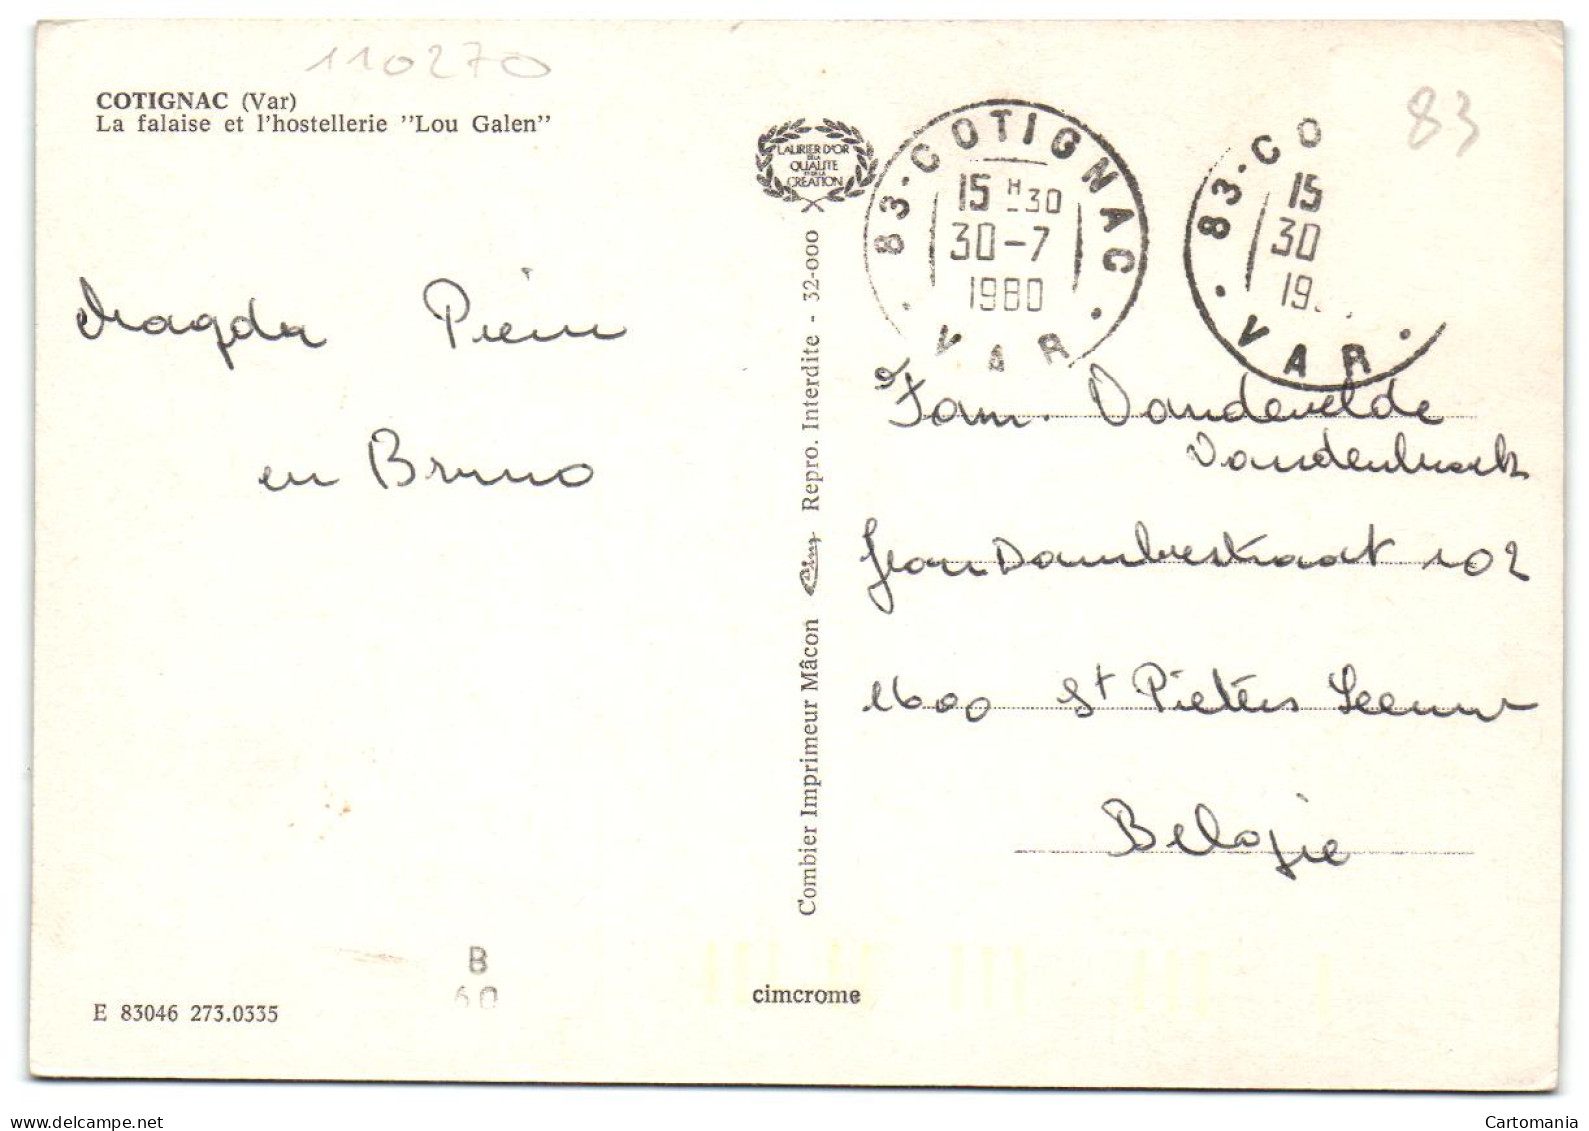 110270
COTIGNAC (Var)
La falaise et l'hostellerie "Lou Galen"
Magda Pierre
en Bruno
B
60
E 83046 273.0335
LAURIER D'OR
DE LA
QUALITE
ET DE LA
CREATION
Combier Imprimeur Mâcon Cim Repro. Interdite - 32-000
cimcrome
83-COTIGNAC
15 H 30
30-7
1980
VAR
83-CO
15
30
19
VAR
83
Fam. Vandevelde
Vandenbroeck
Jean Dambrestraat 102
1600 St Pieters Leeuw
Belgie
www.delcampe.net
Cartomania